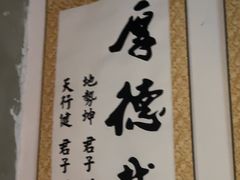 厚德
地勢坤 君子
天行健 君子